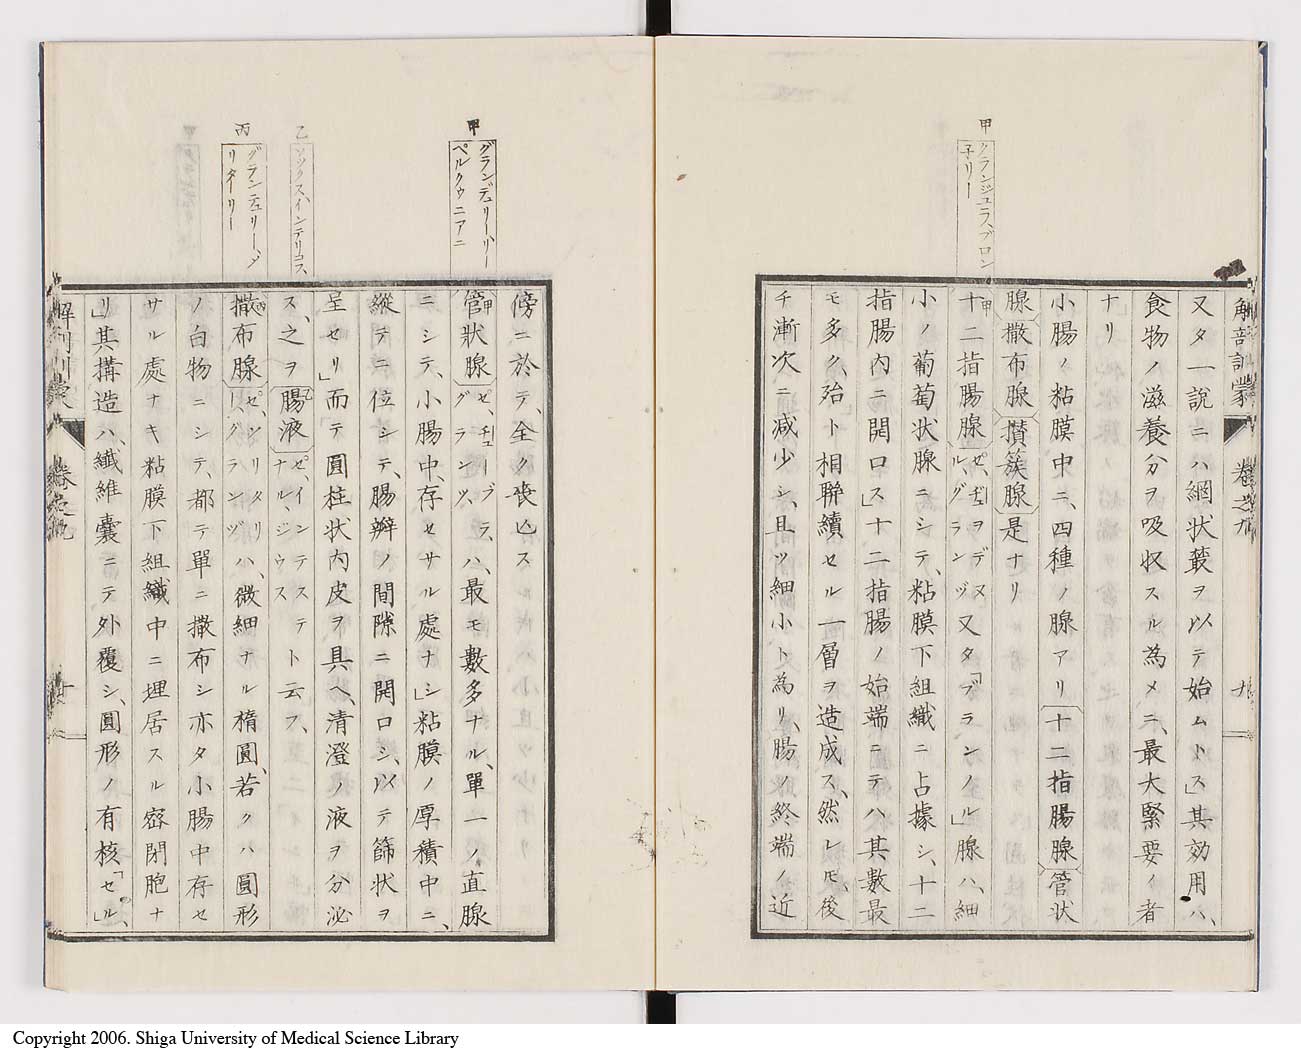 解剖訓蒙
卷之九
九
又タ一說ニハ網状叢ヲ以テ始ムトス」其効用ハ、
食物ノ滋養分ヲ吸収スル為メニ、最大緊要ノ者
ナリ
小腸ノ粘膜中ニ、四種ノ腺アリ十二指腸腺管状
腺撒布腺攅簇腺是ナリ
甲
クランジュラス、ブロン
子リー
甲十二指腸腺ゼ、ヂュヲデヌ
ル、グランヅ又タ「ブランノル」腺ハ、細
小ノ葡萄状腺ニシテ、粘膜下組織ニ占據シ、十二
指腸内ニ開口ス」十二指腸ノ始端ニテハ其數最
モ多ク、殆ト相聯續セル一層ヲ造成ス、然レ𪜈、後
チ漸次ニ减少シ、且ツ細小ト為リ、腸ノ終端ノ近
傍ニ於テ、全ク喪亾ス
甲
グランデュリー、リー
ペルクゥニアニ
甲管狀腺ゼ、チューブラ、
グランヅ、ハ、最モ數多ナル、單一ノ直腺
ニシテ、小腸中、存セサル處ナシ」粘膜ノ厚積中ニ、
縱テニ位シテ、腸瓣ノ間隙ニ開口シ、以テ篩状ヲ
呈セリ」而テ圓柱状内皮ヲ具ヘ、清澄ノ液ヲ分泌
乙
ソックス、インテリコス
ス、之ヲ乙腸液ゼ、インテステ
ナ、ル、ジウスト云フ、
丙
グランデュリー、ダ
リターリー
丙撒布腺ゼ、ソリタリ
ー、グランヅハ、微細ナル楕圓、若クハ圓形
ノ白物ニシテ、都テ單ニ撒布シ亦タ小腸中存セ
サル處ナキ粘膜下組織中ニ埋居スル密閉胞ナ
リ」其搆造ハ、纎維囊ニテ外覆シ、圓形ノ有核「セル、」
解剖訓蒙
卷之九
十